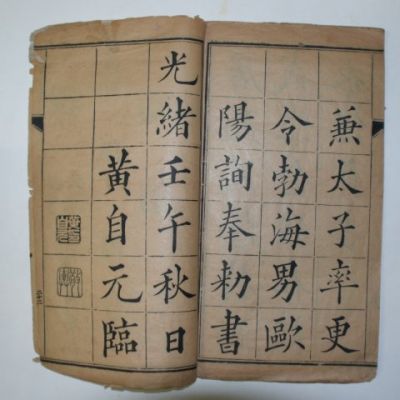 兼太子率更
令勃海男歐
陽詢奉勅書
光緒壬午秋日
黃自元臨